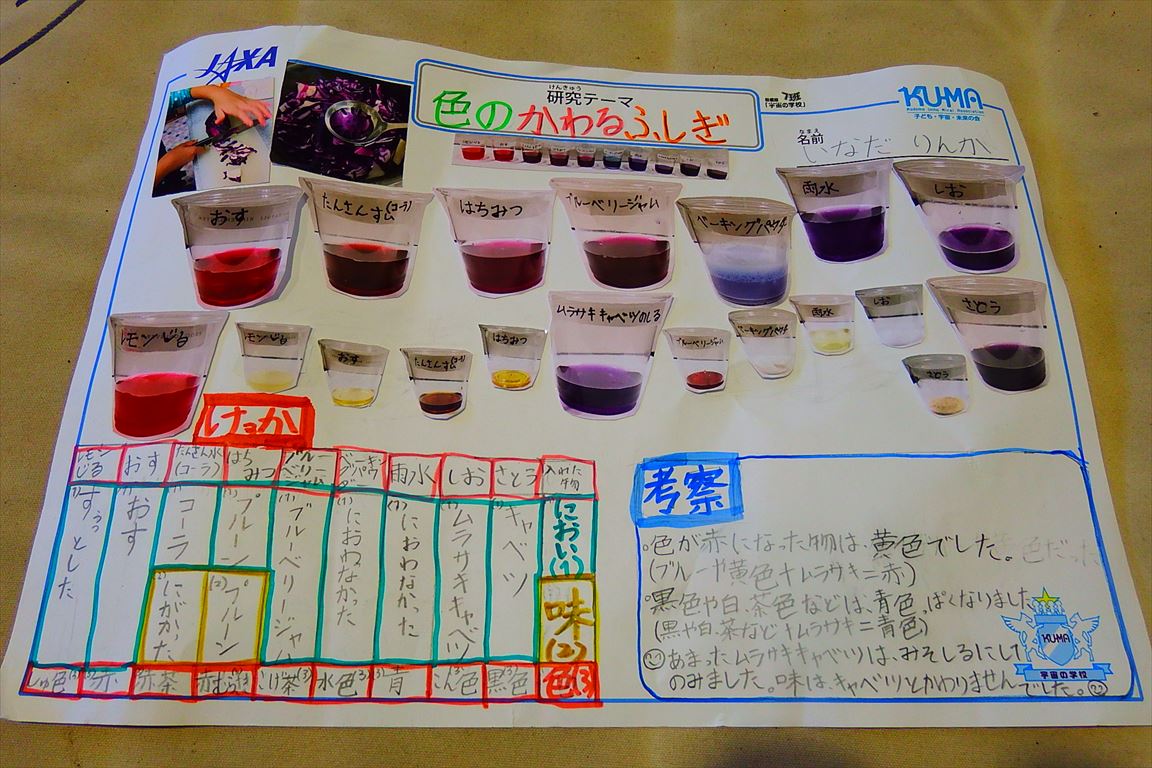 JAXA
けんきゅう
研究テーマ
色のかわるふしぎ
「宇宙の学校」
KU-MA
子ども・宇宙・未来の会
なまえ
名前
いなだ りんか
おす
たんさん水(コーラ)
はちみつ
ブルーベリージャム
ベーキングパウダー
雨水
しお
レモンじる
レモンじる
おす
たんさん水(コーラ)
はちみつ
ムラサキキャベツのしる
ブルーベリージャム
ベーキングパウダー
雨水
しお
さとう
さとう
けっか
レモンじる
おす
たんさん水(コーラ)
はちみつ
ブルーベリージャム
雨水
しお
さとう
入れた物
(1)すうっとした
(1)おす
(1)コーラ
(1)プルーン
(1)ブルーベリージャム
(1)におわなかった
(1)におわなかった
(1)ムラサキキャベツ
(1)キャベツ
におい(1)
(2)にがかった
(2)プルーン
味(2)
しゅ色(3)
赤(3)
赤茶
こげ茶(3)
水色(3)
青(3)
こん色(3)
黒色(3)
色(3)
考察
○色が赤になった物は、黄色でした。
(ブルーや黄色+ムラサキ=赤)
○黒色や白、茶色などは、青色っぱくなりました
(黒や白、茶など+ムラサキ=青色)
あまったムラサキキャベツは、みそしるにして
のみました。味は、キャベツとかわりませんでした。
KU-MA
宇宙の学校